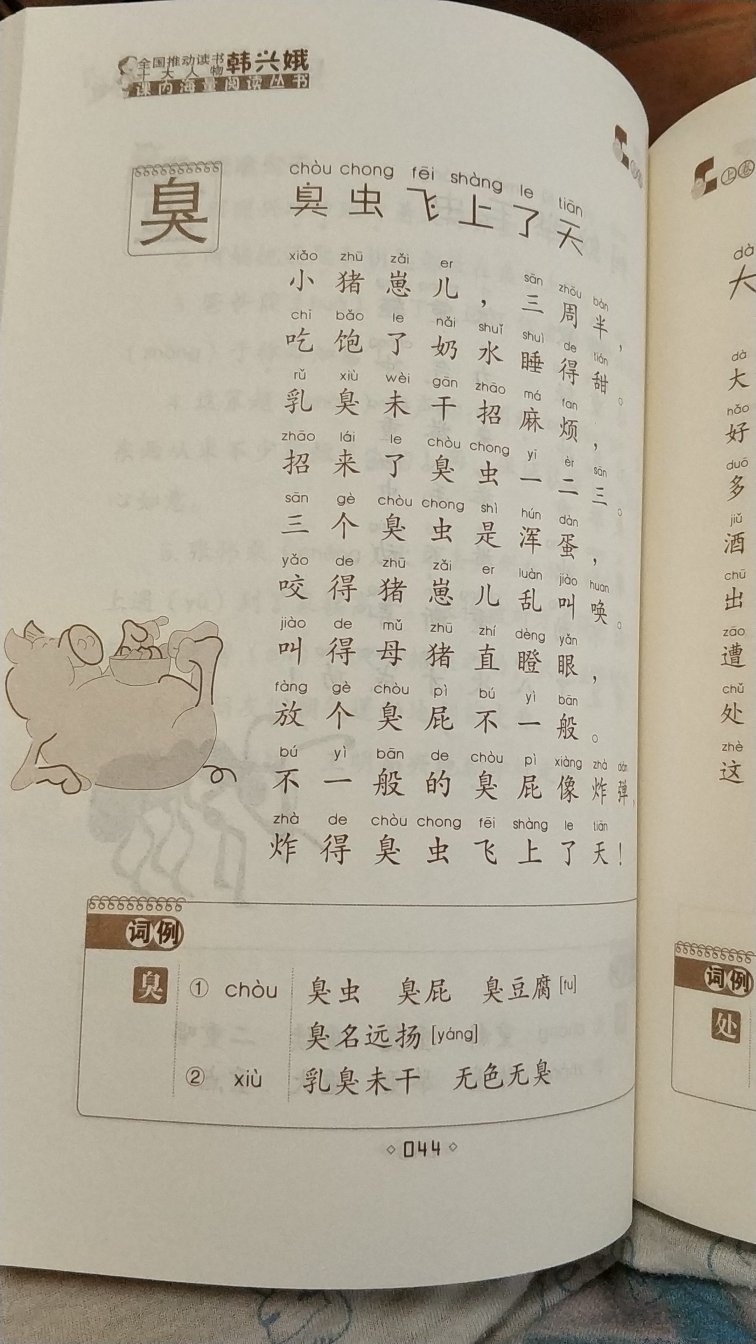 全国推动读书
十大人物 韩兴娥
课内海量阅读丛书
臭
chòu chong fēi shàng le tiān
臭虫飞上了天
xiǎo zhū zǎi er sān zhōu bàn
小猪崽儿，三周半，
chī bǎo le nǎi shuǐ shuì de tián
吃饱了奶水睡得甜。
rǔ xiù wèi gān zhāo má fan
乳臭未干招麻烦，
zhāo lái le chòu chong yī èr sān
招来了臭虫一二三。
sān gè chòu chong shì hún dàn
三个臭虫是浑蛋，
yǎo de zhū zǎi er luàn jiào huan
咬得猪崽儿乱叫唤。
jiào de mǔ zhū zhí dèng yǎn
叫得母猪直瞪眼，
fàng gè chòu pì bú yì bān
放个臭屁不一般。
bú yì bān de chòu pì xiàng zhà dàn
不一般的臭屁像炸弹，
zhà de chòu chong fēi shàng le tiān
炸得臭虫飞上了天！
词例
臭 ① chòu 臭虫 臭屁 臭豆腐[fu]
臭名远扬[yáng]
② xiù 乳臭未干 无色无臭
044
上卷
dà
大
dà
大
hǎo
好
duō
多
jiǔ
酒
chū
出
zāo
遭
chǔ
处
zhè
这
词例
处